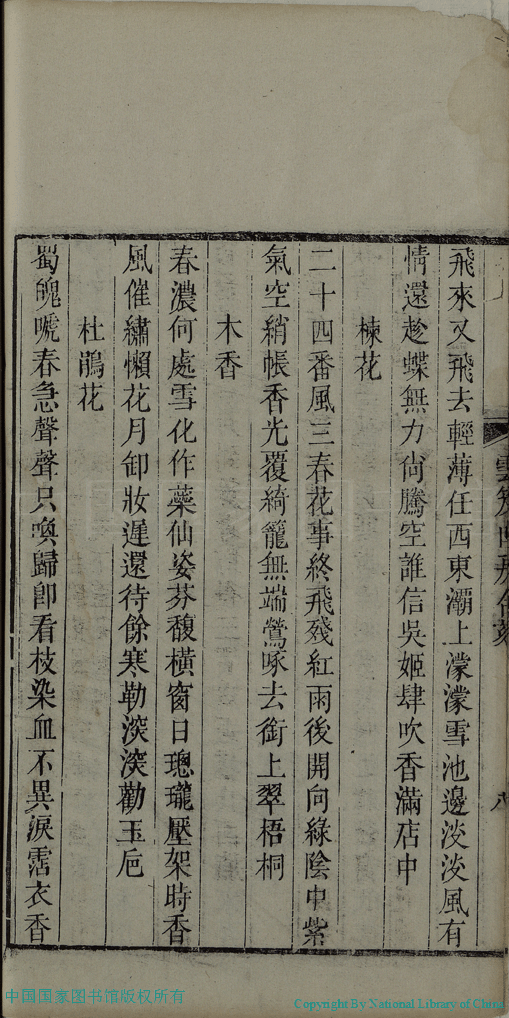 飛來又飛去輕薄任西東灞上濛濛雪池邊淡淡風有
情還趁蝶無力尚騰空誰信吳姬肆吹香滿店中
楝花
二十四番風三春花事終飛殘紅雨後開向綠陰中紫
氣空綃帳香光覆綺籠無端鶯啄去銜上翠梧桐
木香
春濃何處雪化作藥仙姿芬馥橫窗日璁瓏壓架時香
風催繡懶花月卸妝遲還待餘寒勒深深勸玉卮
杜鵑花
蜀魄唬春急聲聲只喚歸卽看枝染血不異淚霑衣香
中国国家图书馆版权所有
Copyright By National Library of China